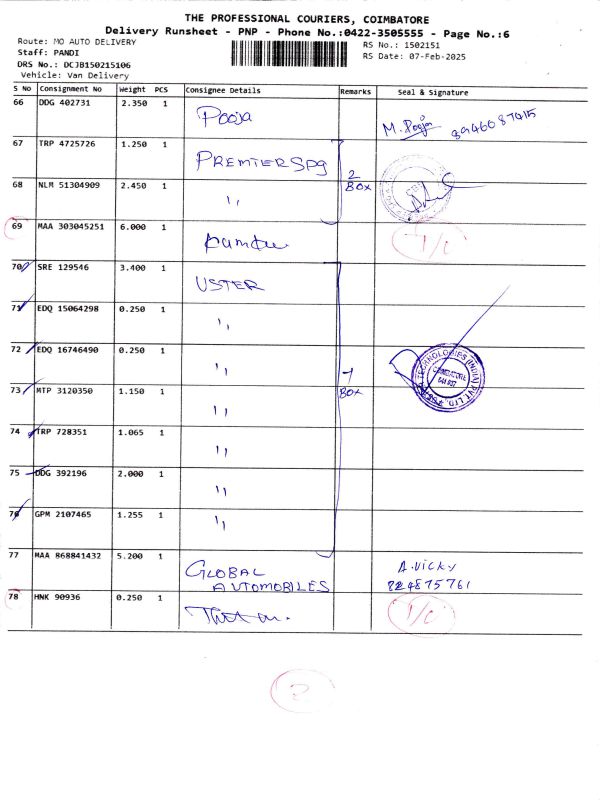 THE PROFESSIONAL COURIERS, COIMBATORE
Delivery Runsheet - PNP - Phone No.:0422-3505555 - Page No.:6
Route: MO AUTO DELIVERY
RS No.: 1502151
Staff: PANDI
RS Date: 07-Feb-2025
DRS No.: DCJB150215106
Vehicle: Van Delivery
S No Consignment No Weight PCS Consignee Details Remarks Seal & Signature
66 DDG 402731 2.350 1 Pooja M. Pooja
67 TRP 4725726 1.250 1 PREMIER SPG
2 BOX
68 NLM 51304909 2.450 1 ,,
69 MAA 303045251 6.000 1
70 SRE 129546 3.400 1 USTER
71 EDQ 15064298 0.250 1 ,,
72 EDQ 16746490 0.250 1 ,,
TECHNOLOGIES (INDIA) PVT LTD.
COIMBATORE
1 BOX
73 MTP 3120350 1.150 1 ,,
74 TRP 728351 1.065 1 ,,
75 DDG 392196 2.000 1 ,,
76 GPM 2107465 1.255 1 ,,
77 MAA 868841432 5.200 1 GLOBAL AUTOMOBILES A. Vicky
78 HNK 90936 0.250 1